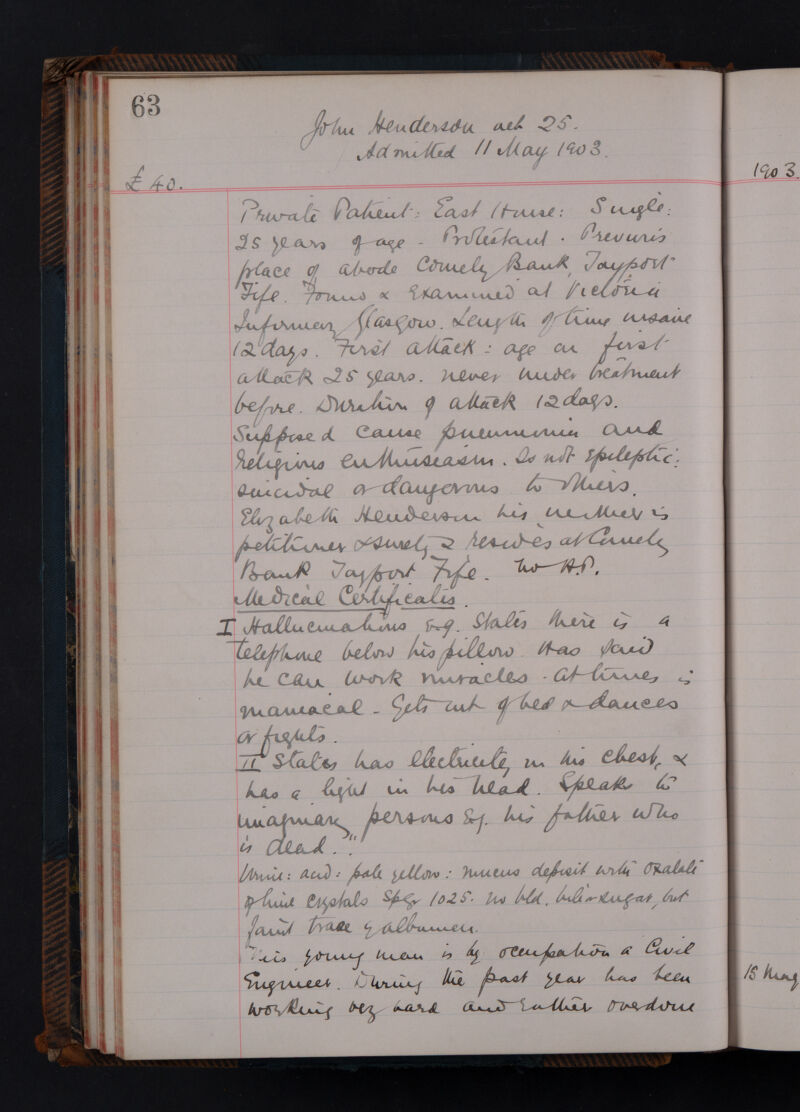 63
John Henderson aet 25.
Admitted 11 May 1903.
£40.
1903.
Private Patient: East House: Single:
25 years of age - Protestant. Previous
place of abode Comely Bank, Tayport
Fife. Found & Examined at Victoria
Infirmary Glasgow. Length of time insane
12 days. First attack: age on first
attack 25 years. never under treatment
before. Duration of attack 12 days.
Supposed cause pneumonia and
religious enthusiasm. Is not epileptic:
suicidal or dangerous to others.
Elizabeth Henderson his mother is
petitioner & surety & resides at Comely
Bank Tayport Fife. no H.P.
Medical Certificates.
I Hallucinations e.g. States there is a
telephone below his pillow. Has said
he can work miracles. At times is
maniacal - Gets out of bed & dances
or fights.
II States has electricity in his chest, &
has a light in his head. Speaks to
imaginary persons eg. his father who
is dead."
Urine: acid: pale yellow: mucus deposit with Oxalate
of lime crystals Sp.gr 1025. no bld, bile or sugar, but
faint trace of albumen.
This young man is by occupation a Civil
Engineer. During the past year has been
working very hard and rather overdone
15 May